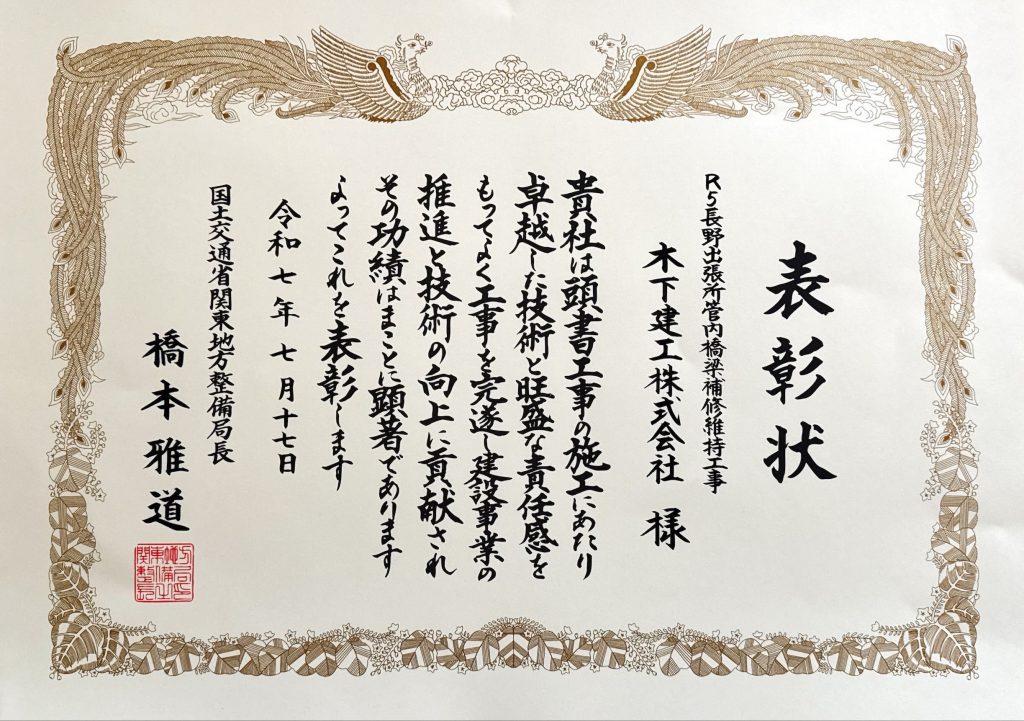 表彰状
R5長野出張所管内橋梁補修維持工事
木下建工株式会社 様
貴社は頭書工事の施工にあたり
卓越した技術と旺盛な責任感を
もってよく工事を完遂し建設事業の
推進と技術の向上に貢献され
その功績はまことに顕著であります
よってこれを表彰します
令和七年七月十七日
国土交通省関東地方整備局長
橋本雅道